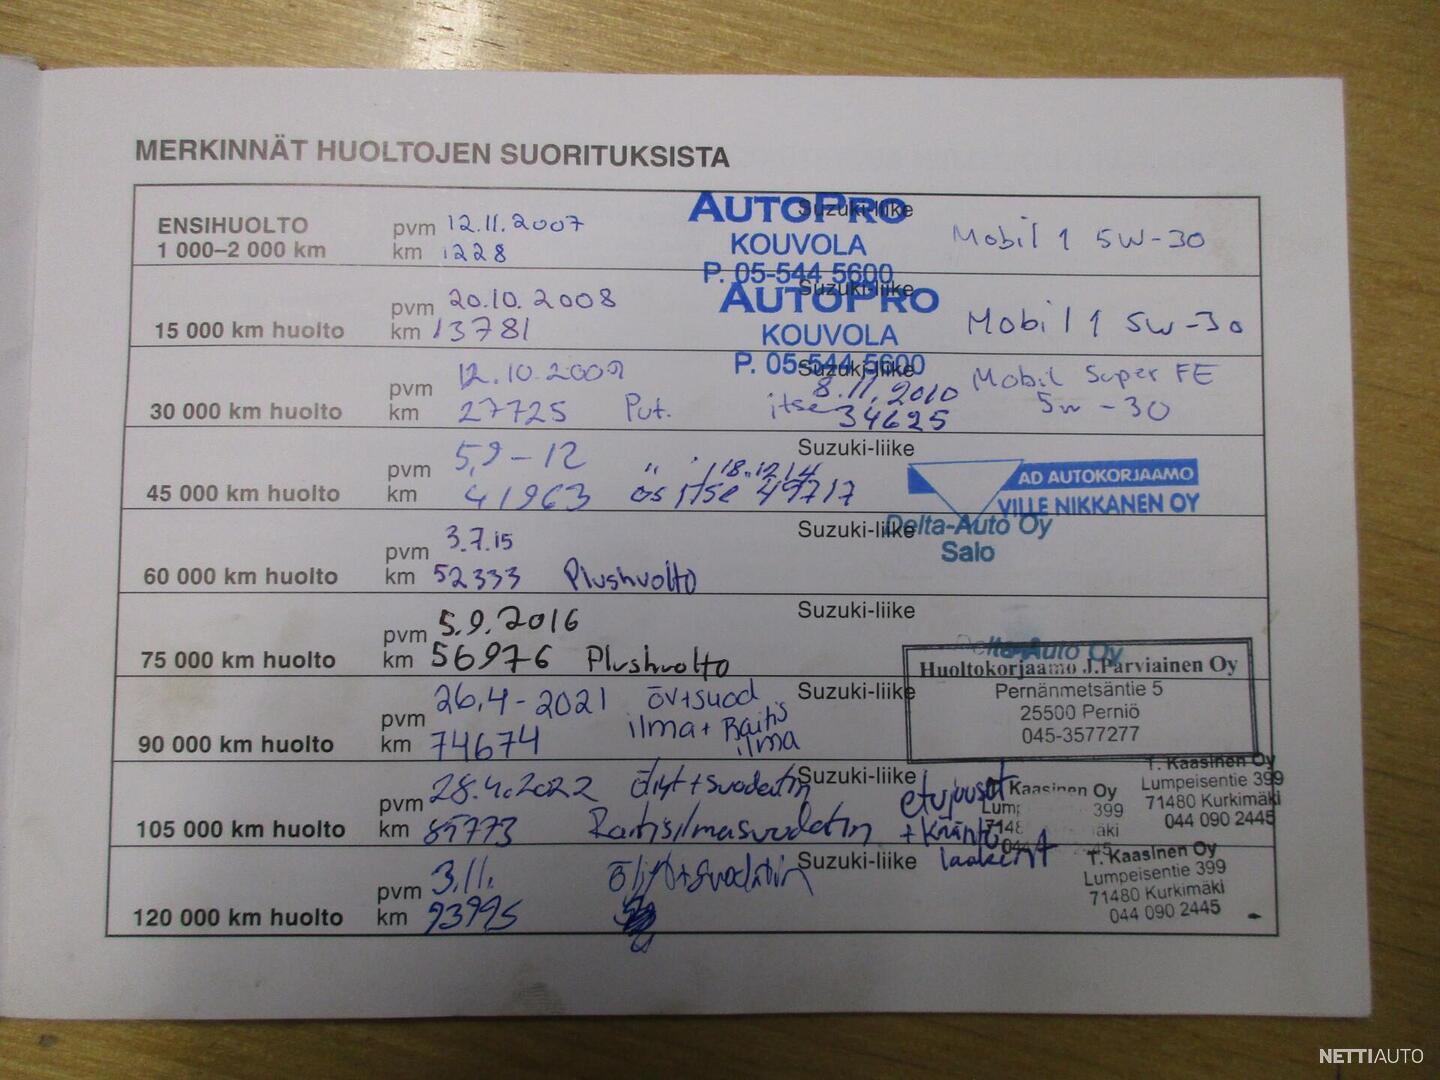 MERKINNÄT HUOLTOJEN SUORITUKSISTA
ENSIHUOLTO
1 000–2 000 km
pvm 12.11.2007
km 1228
Suzuki-liike
AUTOPRO
KOUVOLA
P. 05-544 5600
Mobil 1 5W-30
15 000 km huolto
pvm 20.10.2008
km 13781
Suzuki-liike
AUTOPRO
KOUVOLA
P. 05-544 5600
Mobil 1 5W-30
30 000 km huolto
pvm 12.10.2009
km 27725 Put. itse
Suzuki-liike
8.11.2010
34625
Mobil Super FE
5W-30
45 000 km huolto
pvm 5,9-12
km 41963 ös itse 49717
18.12.14
Suzuki-liike
AD AUTOKORJAAMO
VILLE NIKKANEN OY
60 000 km huolto
pvm 3.7.15
km 52333 Plushuolto
Suzuki-liike
Delta-Auto Oy
Salo
75 000 km huolto
pvm 5.9.2016
km 56976 Plushuolto
Suzuki-liike
Delta-Auto Oy
90 000 km huolto
pvm 26.4-2021 öv+suod
km 74674 ilma+Raitis
ilma
Suzuki-liike
Huoltokorjaamo J.Parviainen Oy
Pernänmetsäntie 5
25500 Perniö
045-3577277
105 000 km huolto
pvm 28.4.2022 Öljyt+suodatin
km 85773 Raitisilmasuodatin
Suzuki-liike
etujouset
+Kääntö
laakerit
Kaasinen Oy
399
T. Kaasinen Oy
Lumpeisentie 399
71480 Kurkimäki
044 090 2445
120 000 km huolto
pvm 3.11. Öljyt+suodatin
km 93995
Suzuki-liike
T. Kaasinen Oy
Lumpeisentie 399
71480 Kurkimäki
044 090 2445
NETTIAUTO